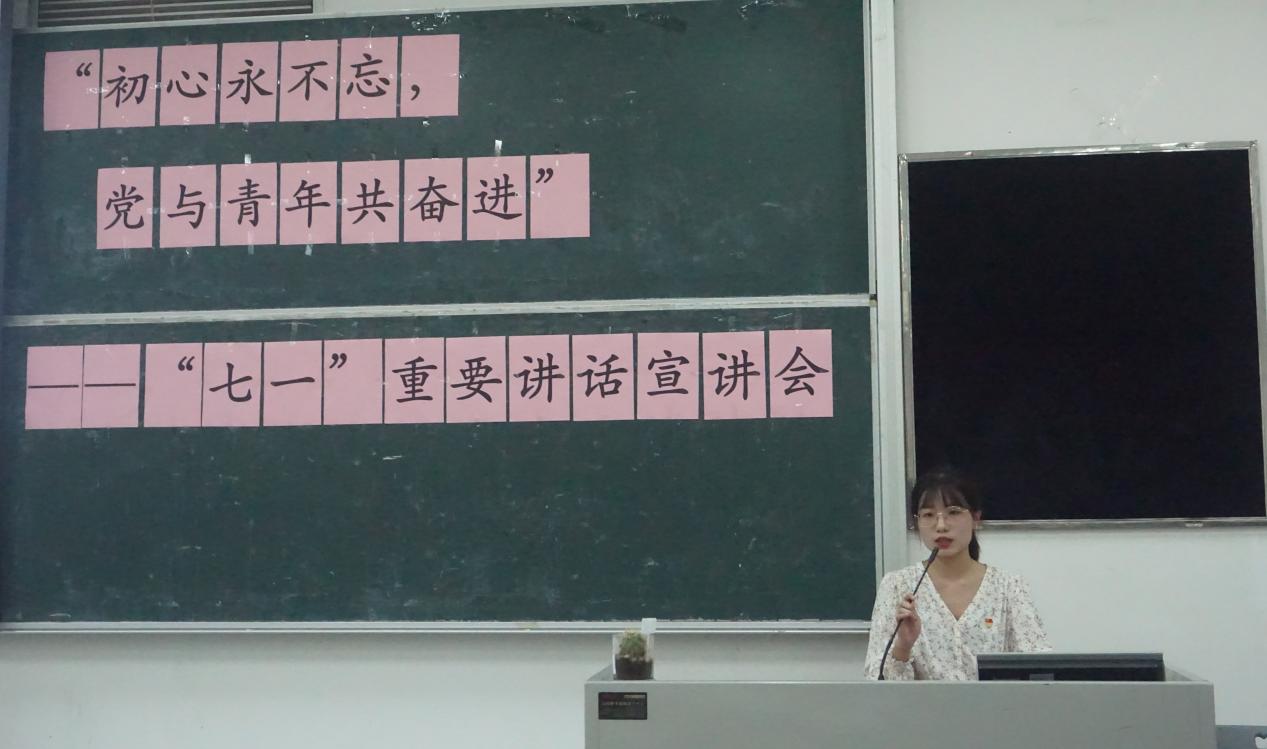 “初心永不忘，
党与青年共奋进”
——“七一”重要讲话宣讲会